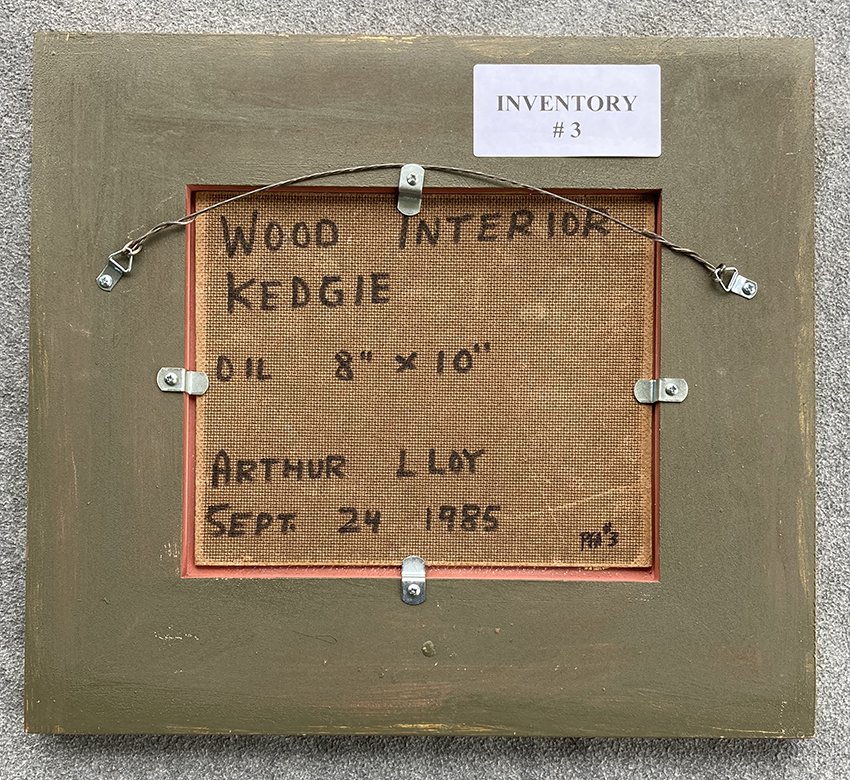 INVENTORY
# 3
WOOD INTERIOR
KEDGIE
OIL 8" x 10"
ARTHUR LLOY
SEPT. 24 1985
PFA #3